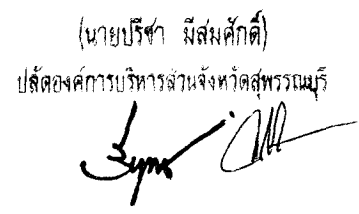 (นายปรีชา มีสมศักดิ์)
ปลัดองค์การบริหารส่วนจังหวัดสุพรรณบุรี